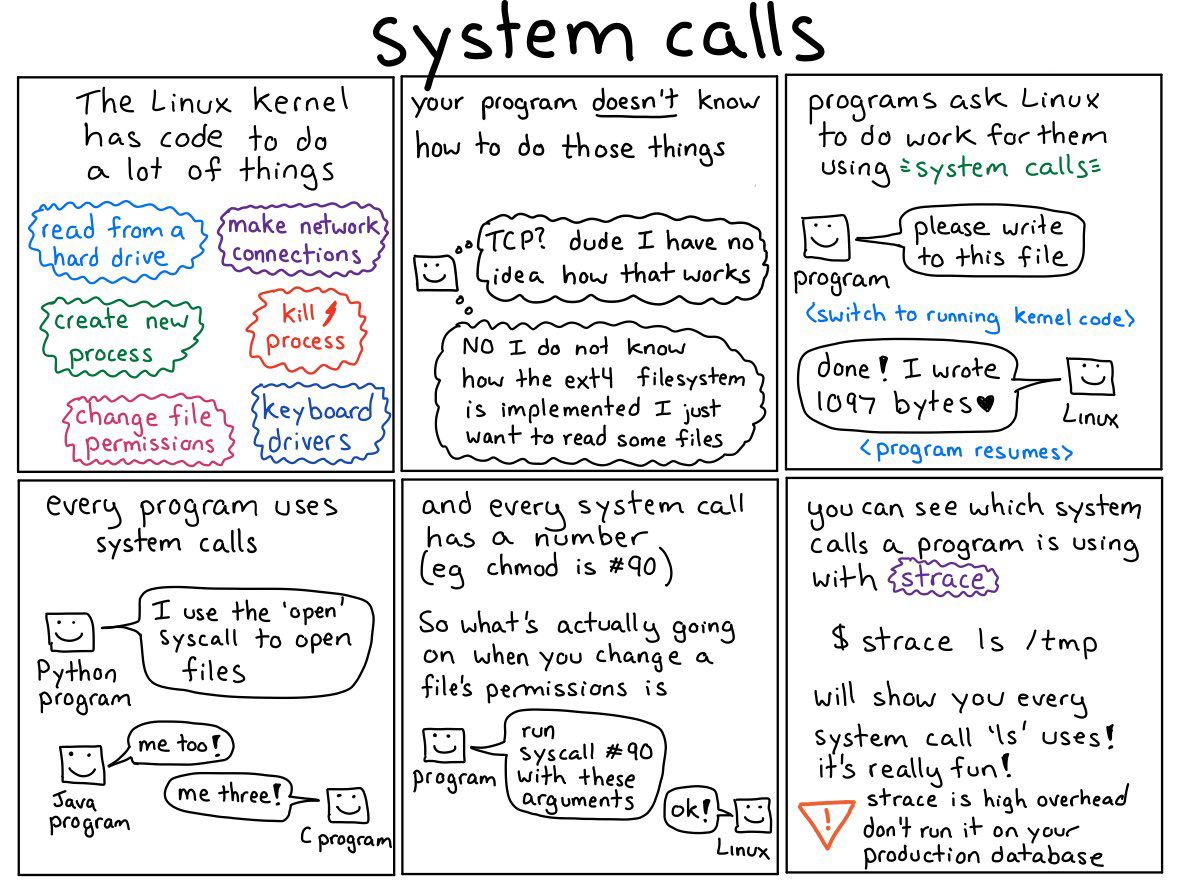 system calls
The Linux Kernel
has code to do
a lot of things
read from a
hard drive
make network
connections
create new
process
kill
process
change file
permissions
keyboard
drivers
your program doesn't know
how to do those things
TCP? dude I have no
idea how that works
NO I do not know
how the ext4 filesystem
is implemented I just
want to read some files
programs ask Linux
to do work for them
using system calls
please write
to this file
program
<switch to running kernel code>
done! I wrote
1097 bytes♥
Linux
<program resumes>
every program uses
system calls
I use the 'open'
syscall to open
files
Python
program
me too!
Java
program
me three!
C program
and every system call
has a number
(eg chmod is #90)
So what's actually going
on when you change a
file's permissions is
run
syscall #90
with these
arguments
program
ok!
Linux
you can see which system
calls a program is using
with strace
$ strace ls /tmp
will show you every
system call 'ls' uses!
it's really fun!
!
strace is high overhead
don't run it on your
production database